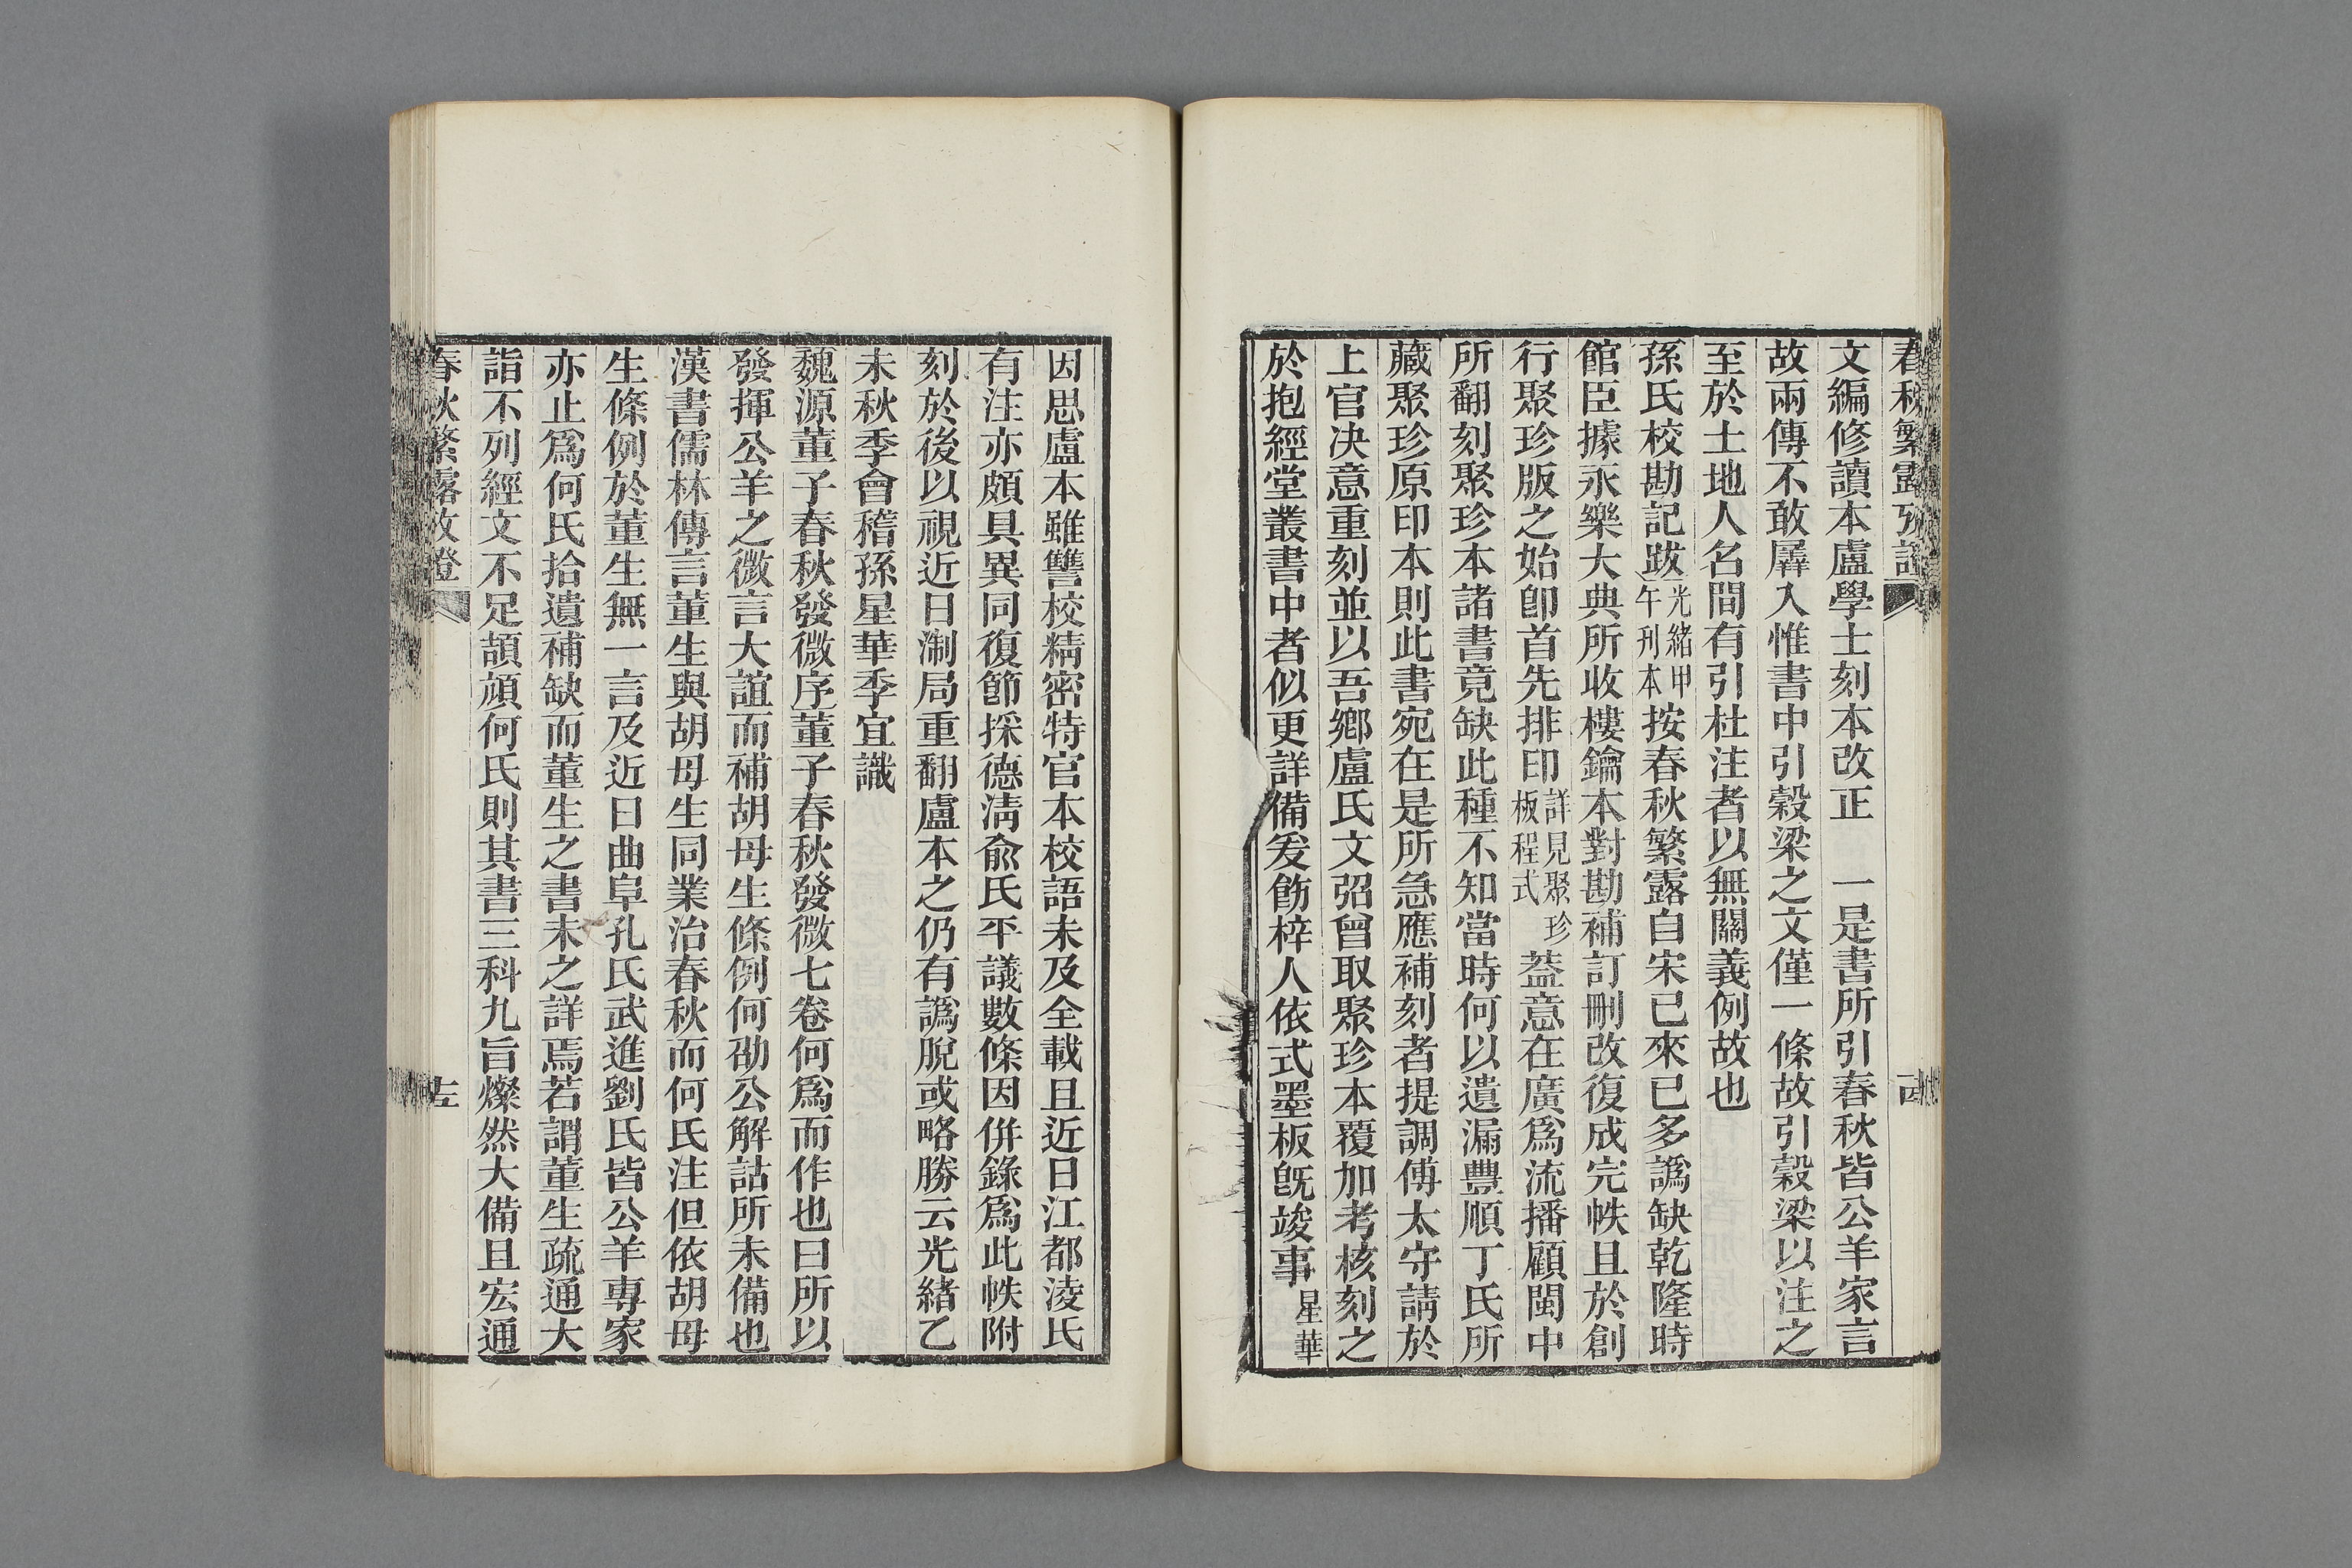 春秋繁露攷證 十四
文編修讀本盧學士刻本改正　一是書所引春秋皆公羊家言
故兩傳不敢羼入惟書中引穀梁之文僅一條故引穀梁以注之
至於土地人名間有引杜注者以無關義例故也
孫氏校勘記跋光緒甲午刋本按春秋繁露自宋已來已多譌缺乾隆時
館臣據永樂大典所收樓鑰本對勘補訂刪改復成完帙且於創
行聚珍版之始卽首先排印詳見聚珍板程式葢意在廣爲流播顧閩中
所翻刻聚珍本諸書竟缺此種不知當時何以遺漏豐順丁氏所
藏聚珍原印本則此書宛在是所急應補刻者提調傅太守請於
上官决意重刻並以吾鄉盧氏文弨曾取聚珍本覆加考核刻之
於抱經堂叢書中者似更詳備爰飭梓人依式墨板旣竣事星華
因思盧本雖讐校精密特官本校語未及全載且近日江都淩氏
有注亦頗具異同復節採德淸俞氏平議數條因併錄爲此帙附
刻於後以視近日淛局重翻盧本之仍有譌脫或略勝云光緖乙
未秋季會稽孫星華季宜識
魏源董子春秋發微序董子春秋發微七卷何爲而作也曰所以
發揮公羊之微言大誼而補胡母生條例何劭公解詁所未備也
漢書儒林傳言董生與胡母生同業治春秋而何氏注但依胡母
生條例於董生無一言及近曰曲阜孔氏武進劉氏皆公羊專家
亦止爲何氏拾遺補缺而董生之書未之詳焉若謂董生疏通大
詣不列經文不足頡頏何氏則其書三科九旨燦然大備且宏通
春秋繁露攷證 十五